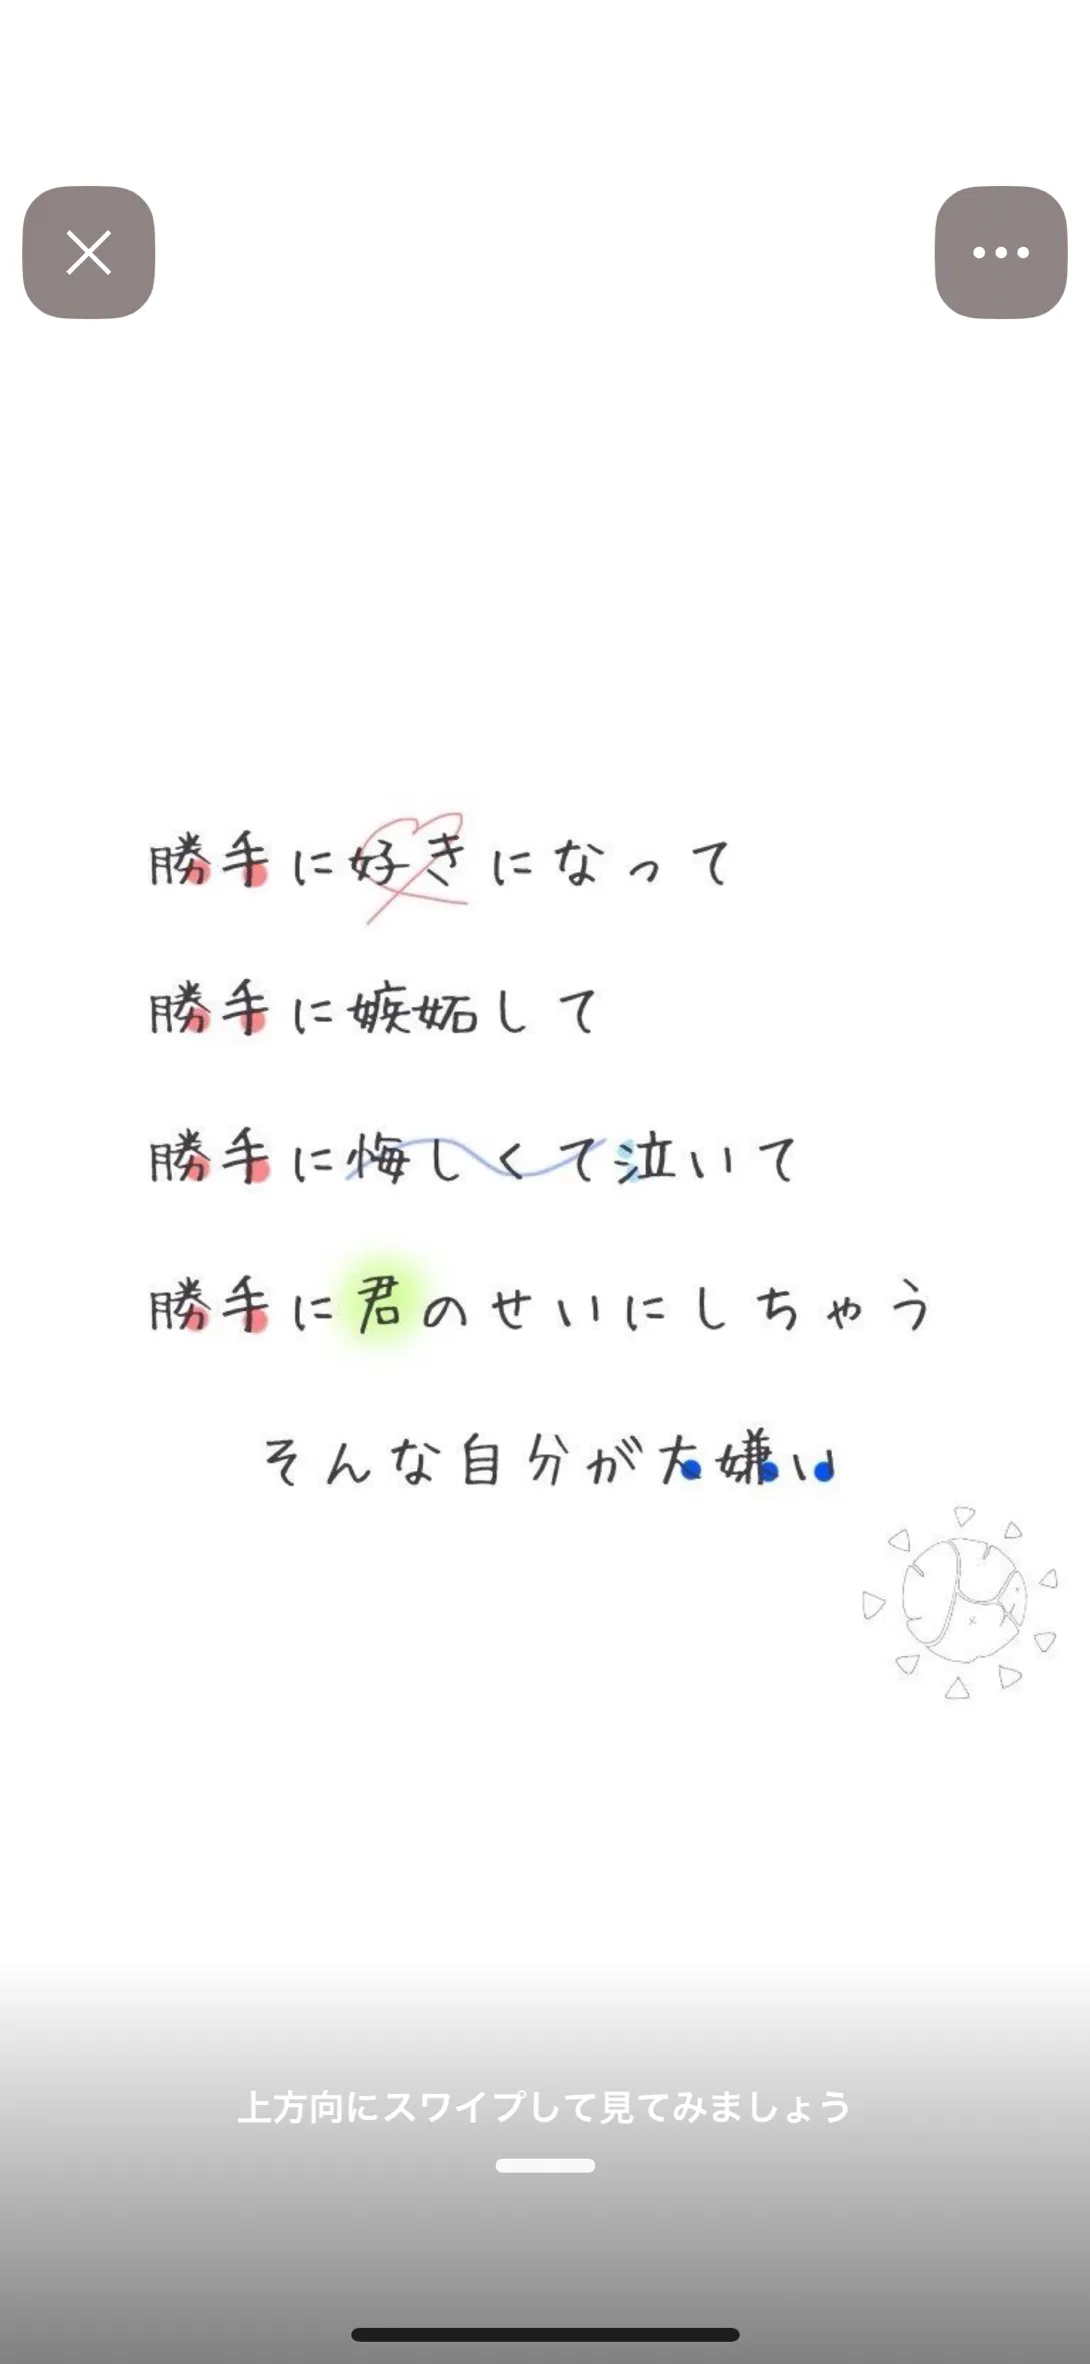 勝手に好きになって
勝手に嫉妬して
勝手に悔しくて泣いて
勝手に君のせいにしちゃう
そんな自分が大嫌い
上方向にスワイプして見てみましょう